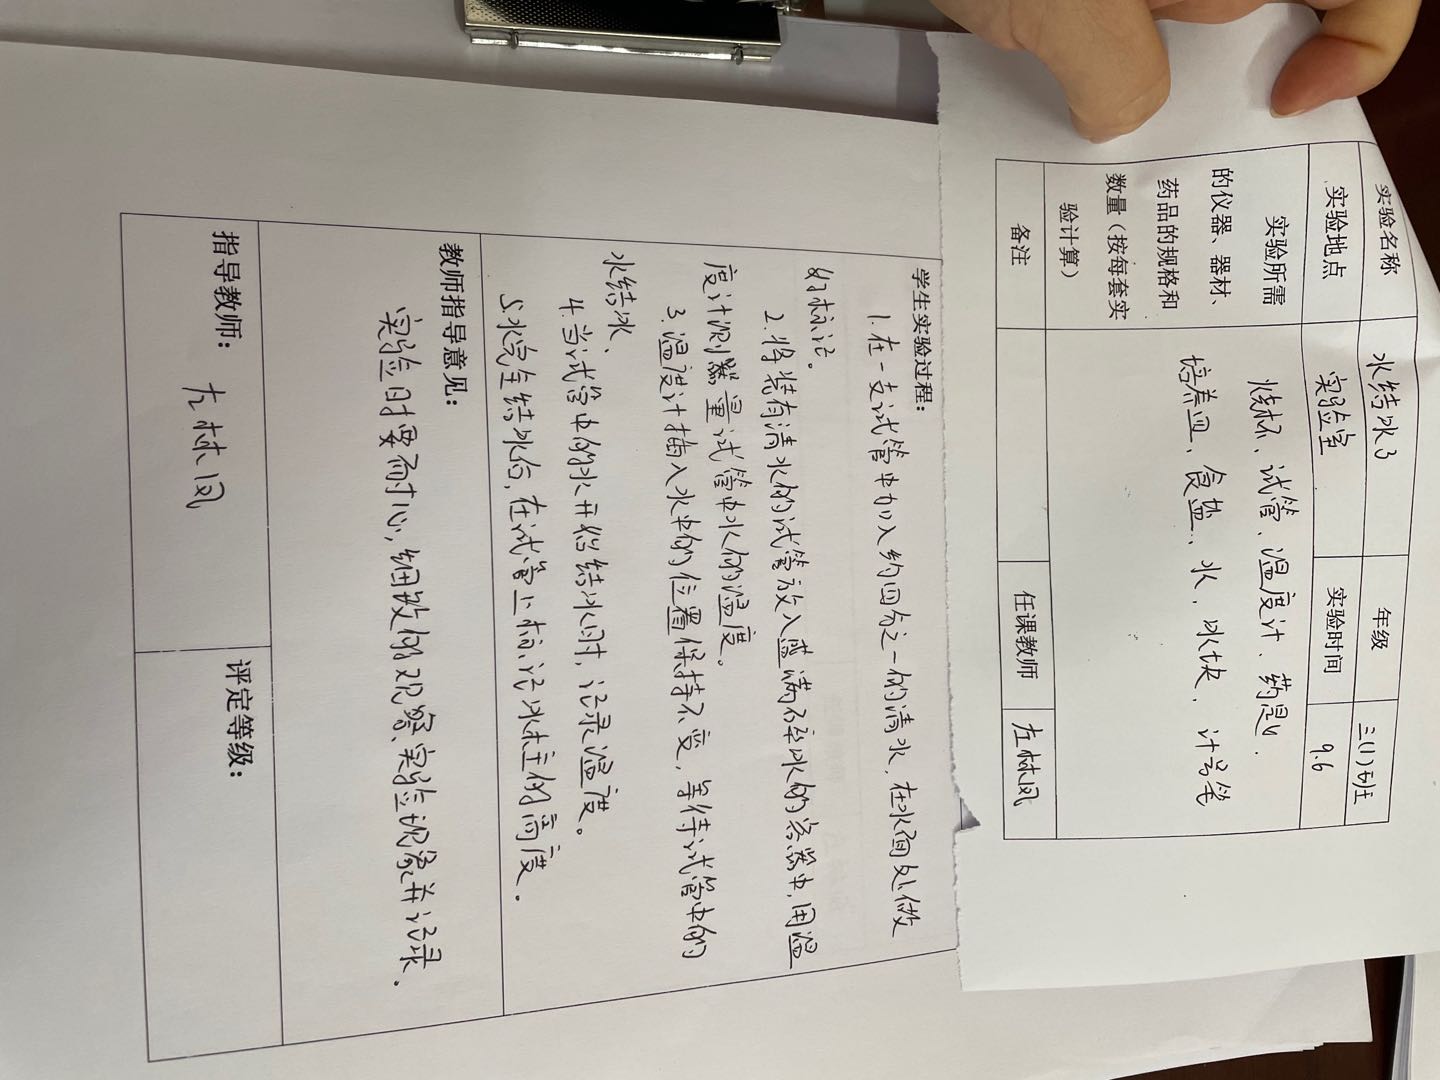 实验名称 水结冰了 年级 三(1)班
实验地点 实验室 实验时间 9.6
实验所需
的仪器、器材、
药品的规格和
数量（按每套实
验计算）
烧杯、试管、温度计、药匙、
培养皿、食盐、水、冰块、计号笔
备注 任课教师 左林凤
学生实验过程：
1.在一支试管中加入约四分之一的清水,在水面处做
好标记。
2.将装有清水的试管放入盛满碎冰的容器中,用温
度计测量试管中水的温度。
3.温度计插入水中的位置保持不变,等待试管中的
水结冰、
4.当试管中的水开始结冰时,记录温度。
5.水完全结冰后,在试管上标记冰柱的高度。
教师指导意见：
实验时要耐心,细致的观察、实验现象并记录.
指导教师： 左林凤 评定等级：